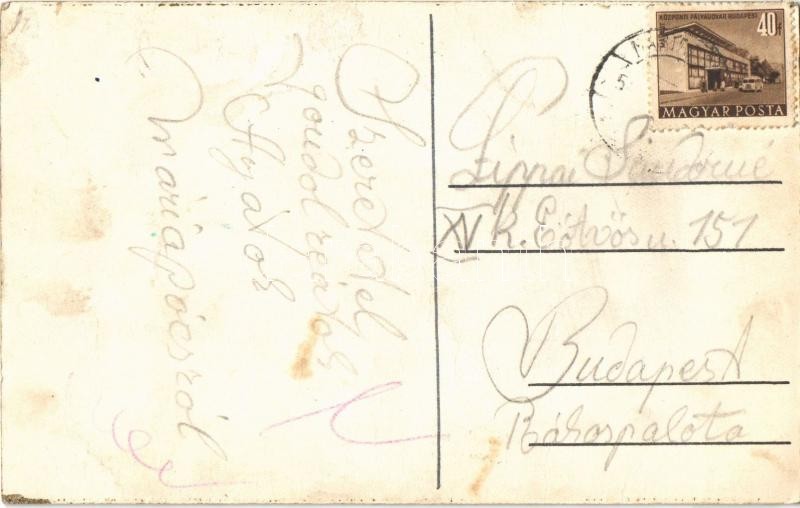 Szeretettel
gondol reátok
Anyátok
Máriapócsról
KÖZPONTI PÁLYAUDVAR BUDAPEST
40f
MAGYAR POSTA
Lippai Sándorné
XV k. Eötvös u. 151
Budapest
Rákospalota